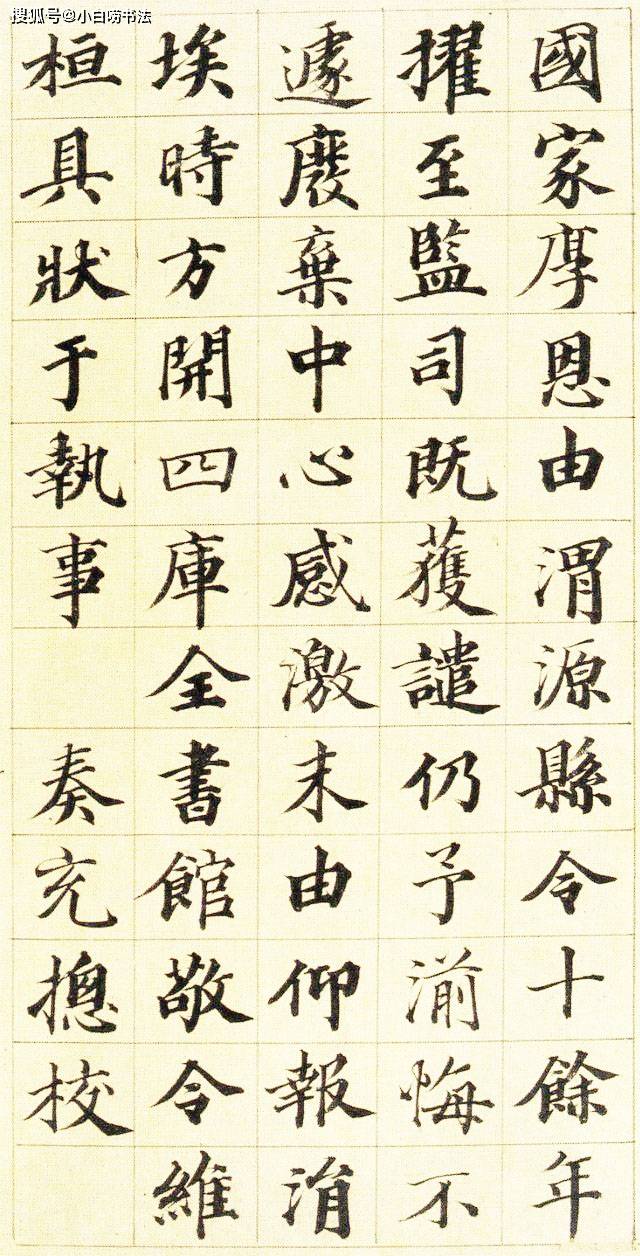 搜狐号@小白唠书法
國家厚恩由渭源縣令十餘年
擢至監司既獲譴仍予湔悔不
遽廢棄中心感激末由仰報涓
埃時方開四庫全書館敬令維
桓具狀于執事　奏充摠校